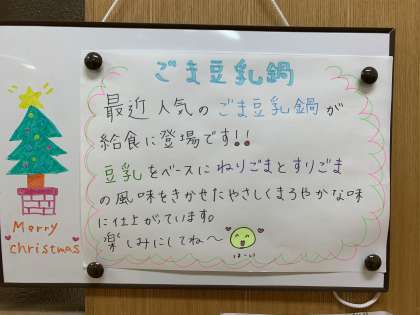 ごま豆乳鍋
最近人気のごま豆乳鍋が
給食に登場です!!
豆乳をベースにねりごまとすりごま
の風味をきかせたやさしくまろやかな味
に仕上がっています。
楽しみにしてね～
は～い
Merry
christmas